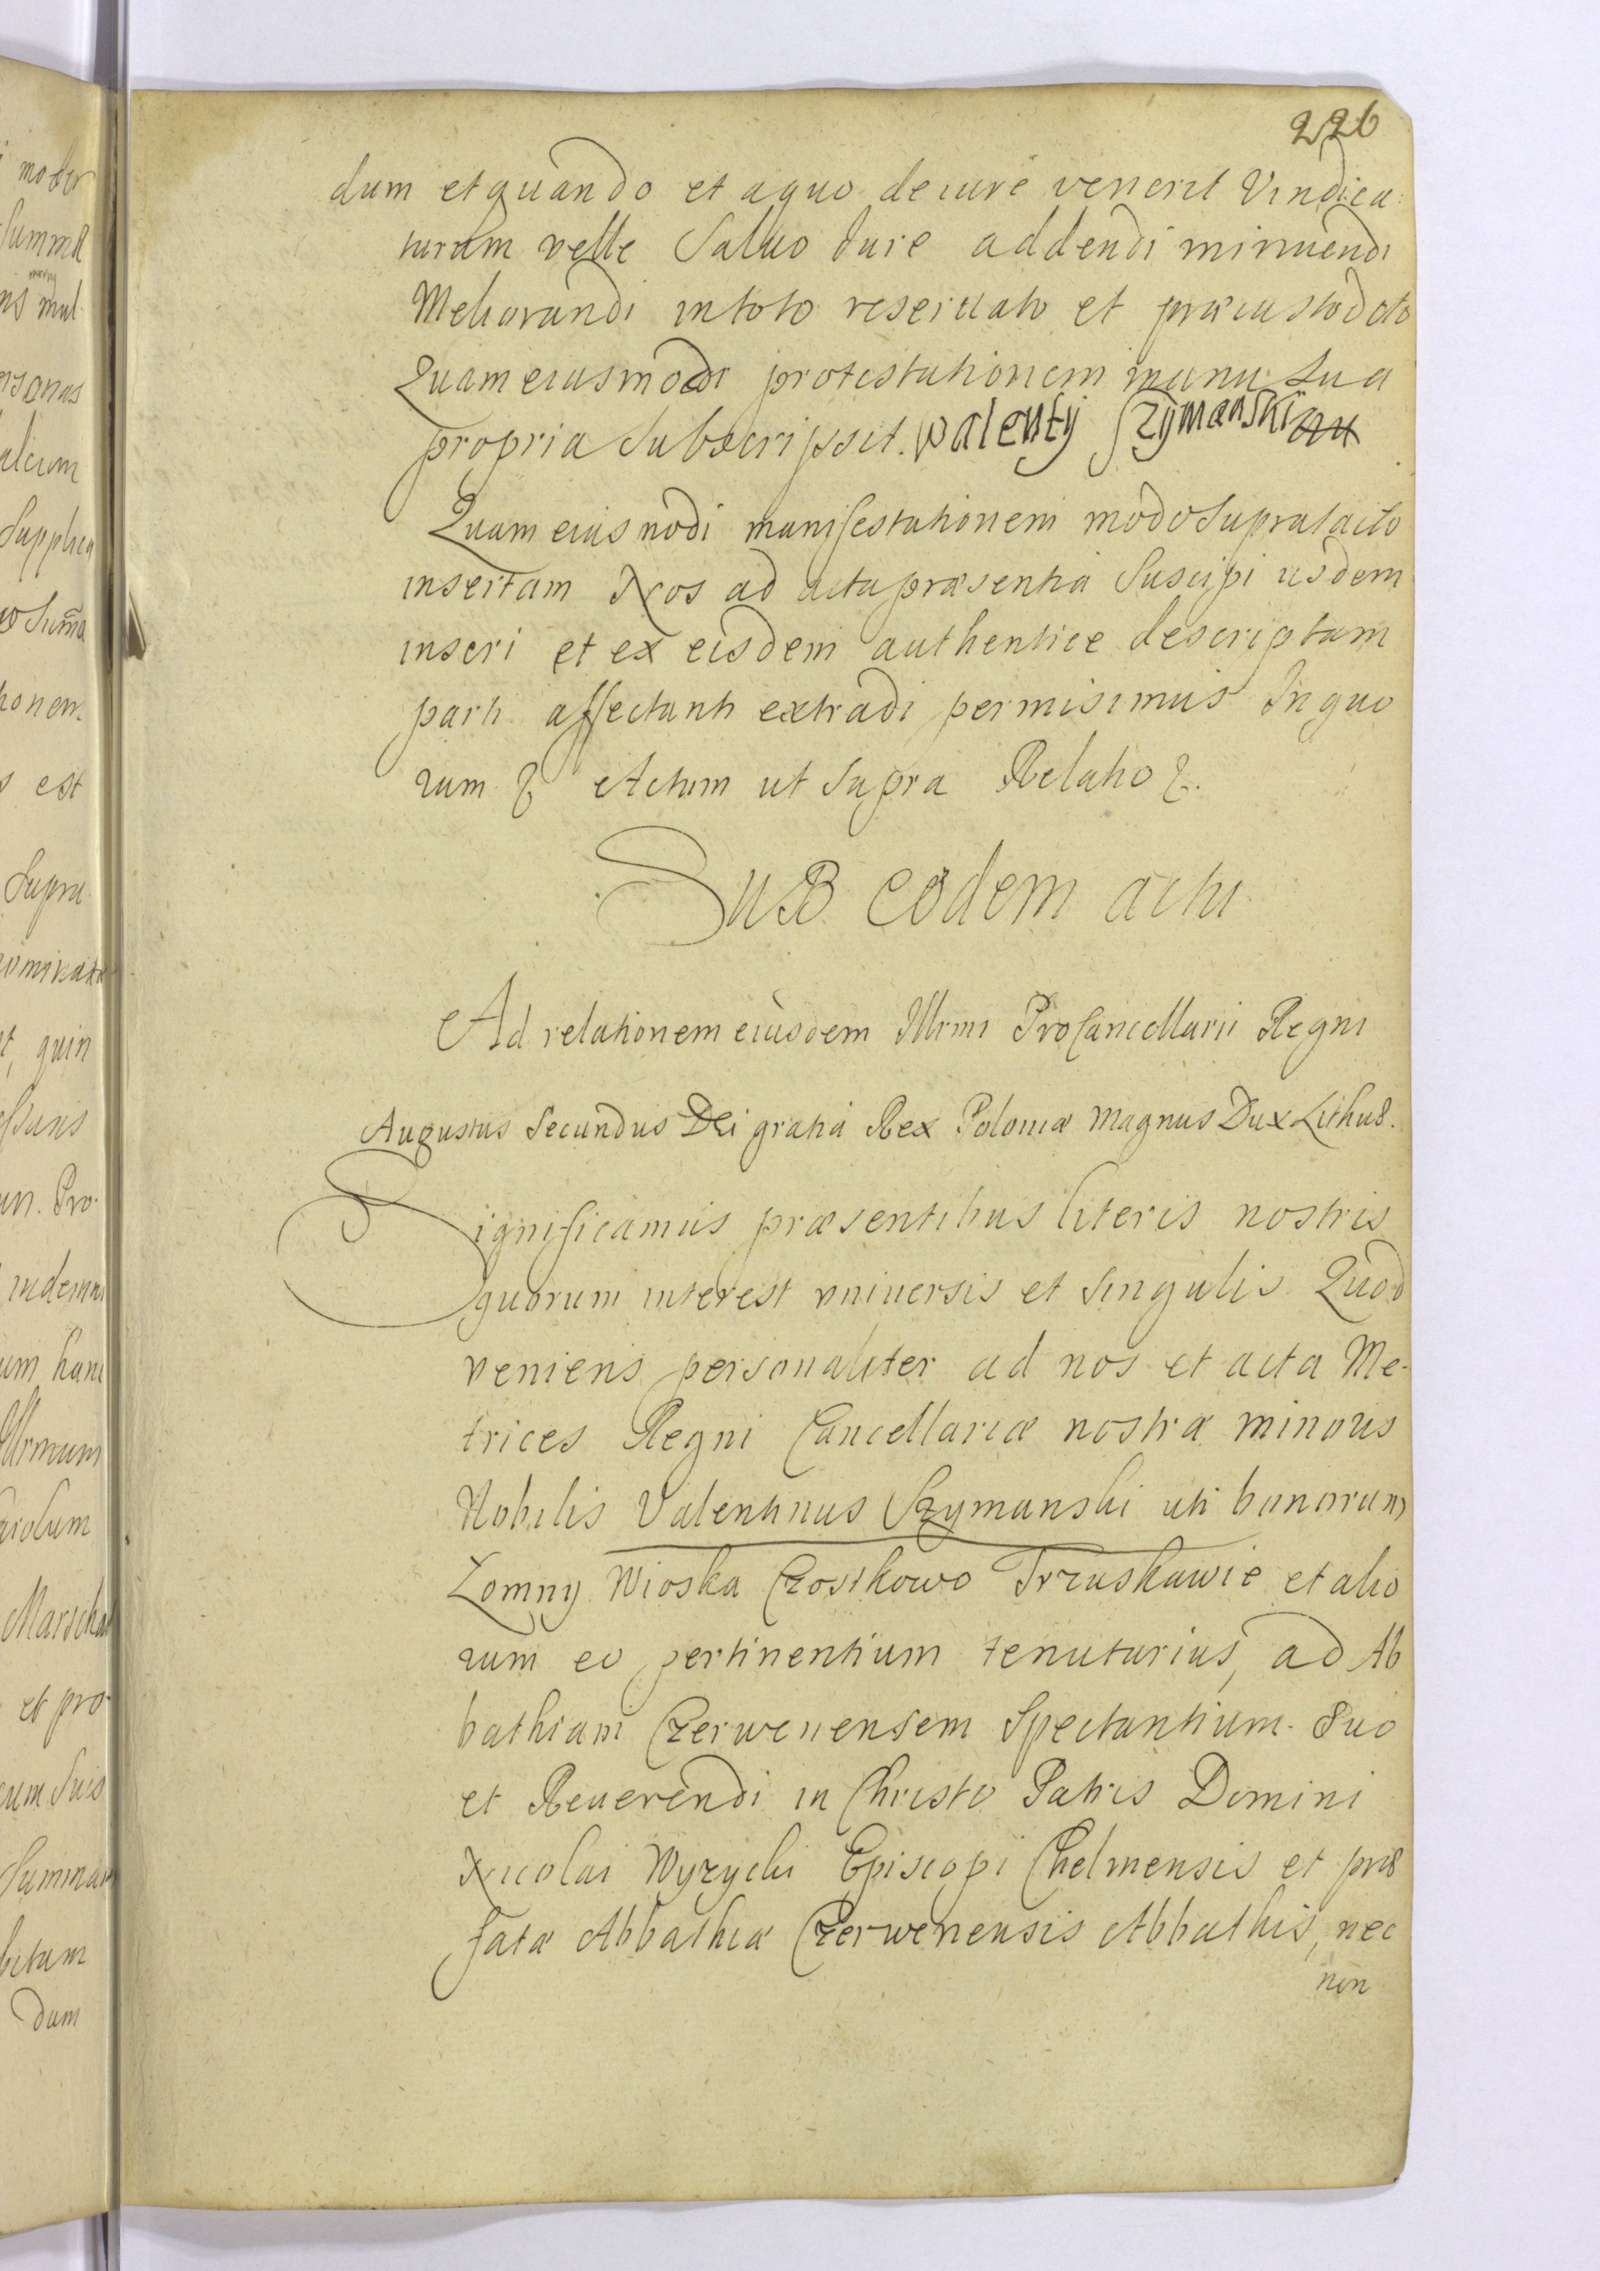 226
dum et quando et a quo de iure venerit Vindica:
turum velle Saluo Iure addendi minuendi
Meliorandi in toto reseruato et præcustodito
Quam eiusmodi protestationem manu Sua
propria Subscripsit. Walenty Szymanski
Quam eiusmodi manifestationem modo Supratacto
insertam Nos ad acta præsentia Suscipi iisdem
inseri et ex eisdem authentice descriptam
parti affectanti extradi permisimus In quo
rum & Actum ut Supra Relatio &.
SUB eodem actu
Ad relationem eiusdem Illrmi ProCancellarii Regni
Augustus Secundus Dei gratia Rex Poloniæ Magnus Dux Lithuæ.
Significamus præsentibus literis nostris
quorum interest vniuersis et Singulis Quod
veniens personaliter ad nos et acta Me-
trices Regni Cancellariæ nostræ minoris
Nobilis Valentinus Szymanski uti bonorum
Lomny Wioska Czostkowo Trzuskawie et alio
rum eo pertinentium tenutarius, ad Ab
bathiam Czerwenensem Spectantium. Suo
et Reuerendi in Christo Patris Domini
Nicolai Wyzycki Episcopi Chelmensis et præ
fatæ Abbathiæ Czerwenensis Abbathis, nec
non